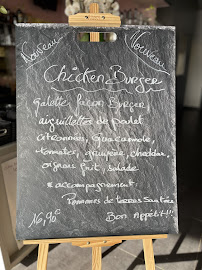 Nouveau
Nouveau
Chicken Burger
Galette façon Burger,
aiguillettes de Poulet
citronnées, Guacamole,
tomates, gruyère, cheddar,
oignon frit, salade
& accompagnement:
Pommes de terres Sautées
16,90€
Bon Appétit!!!